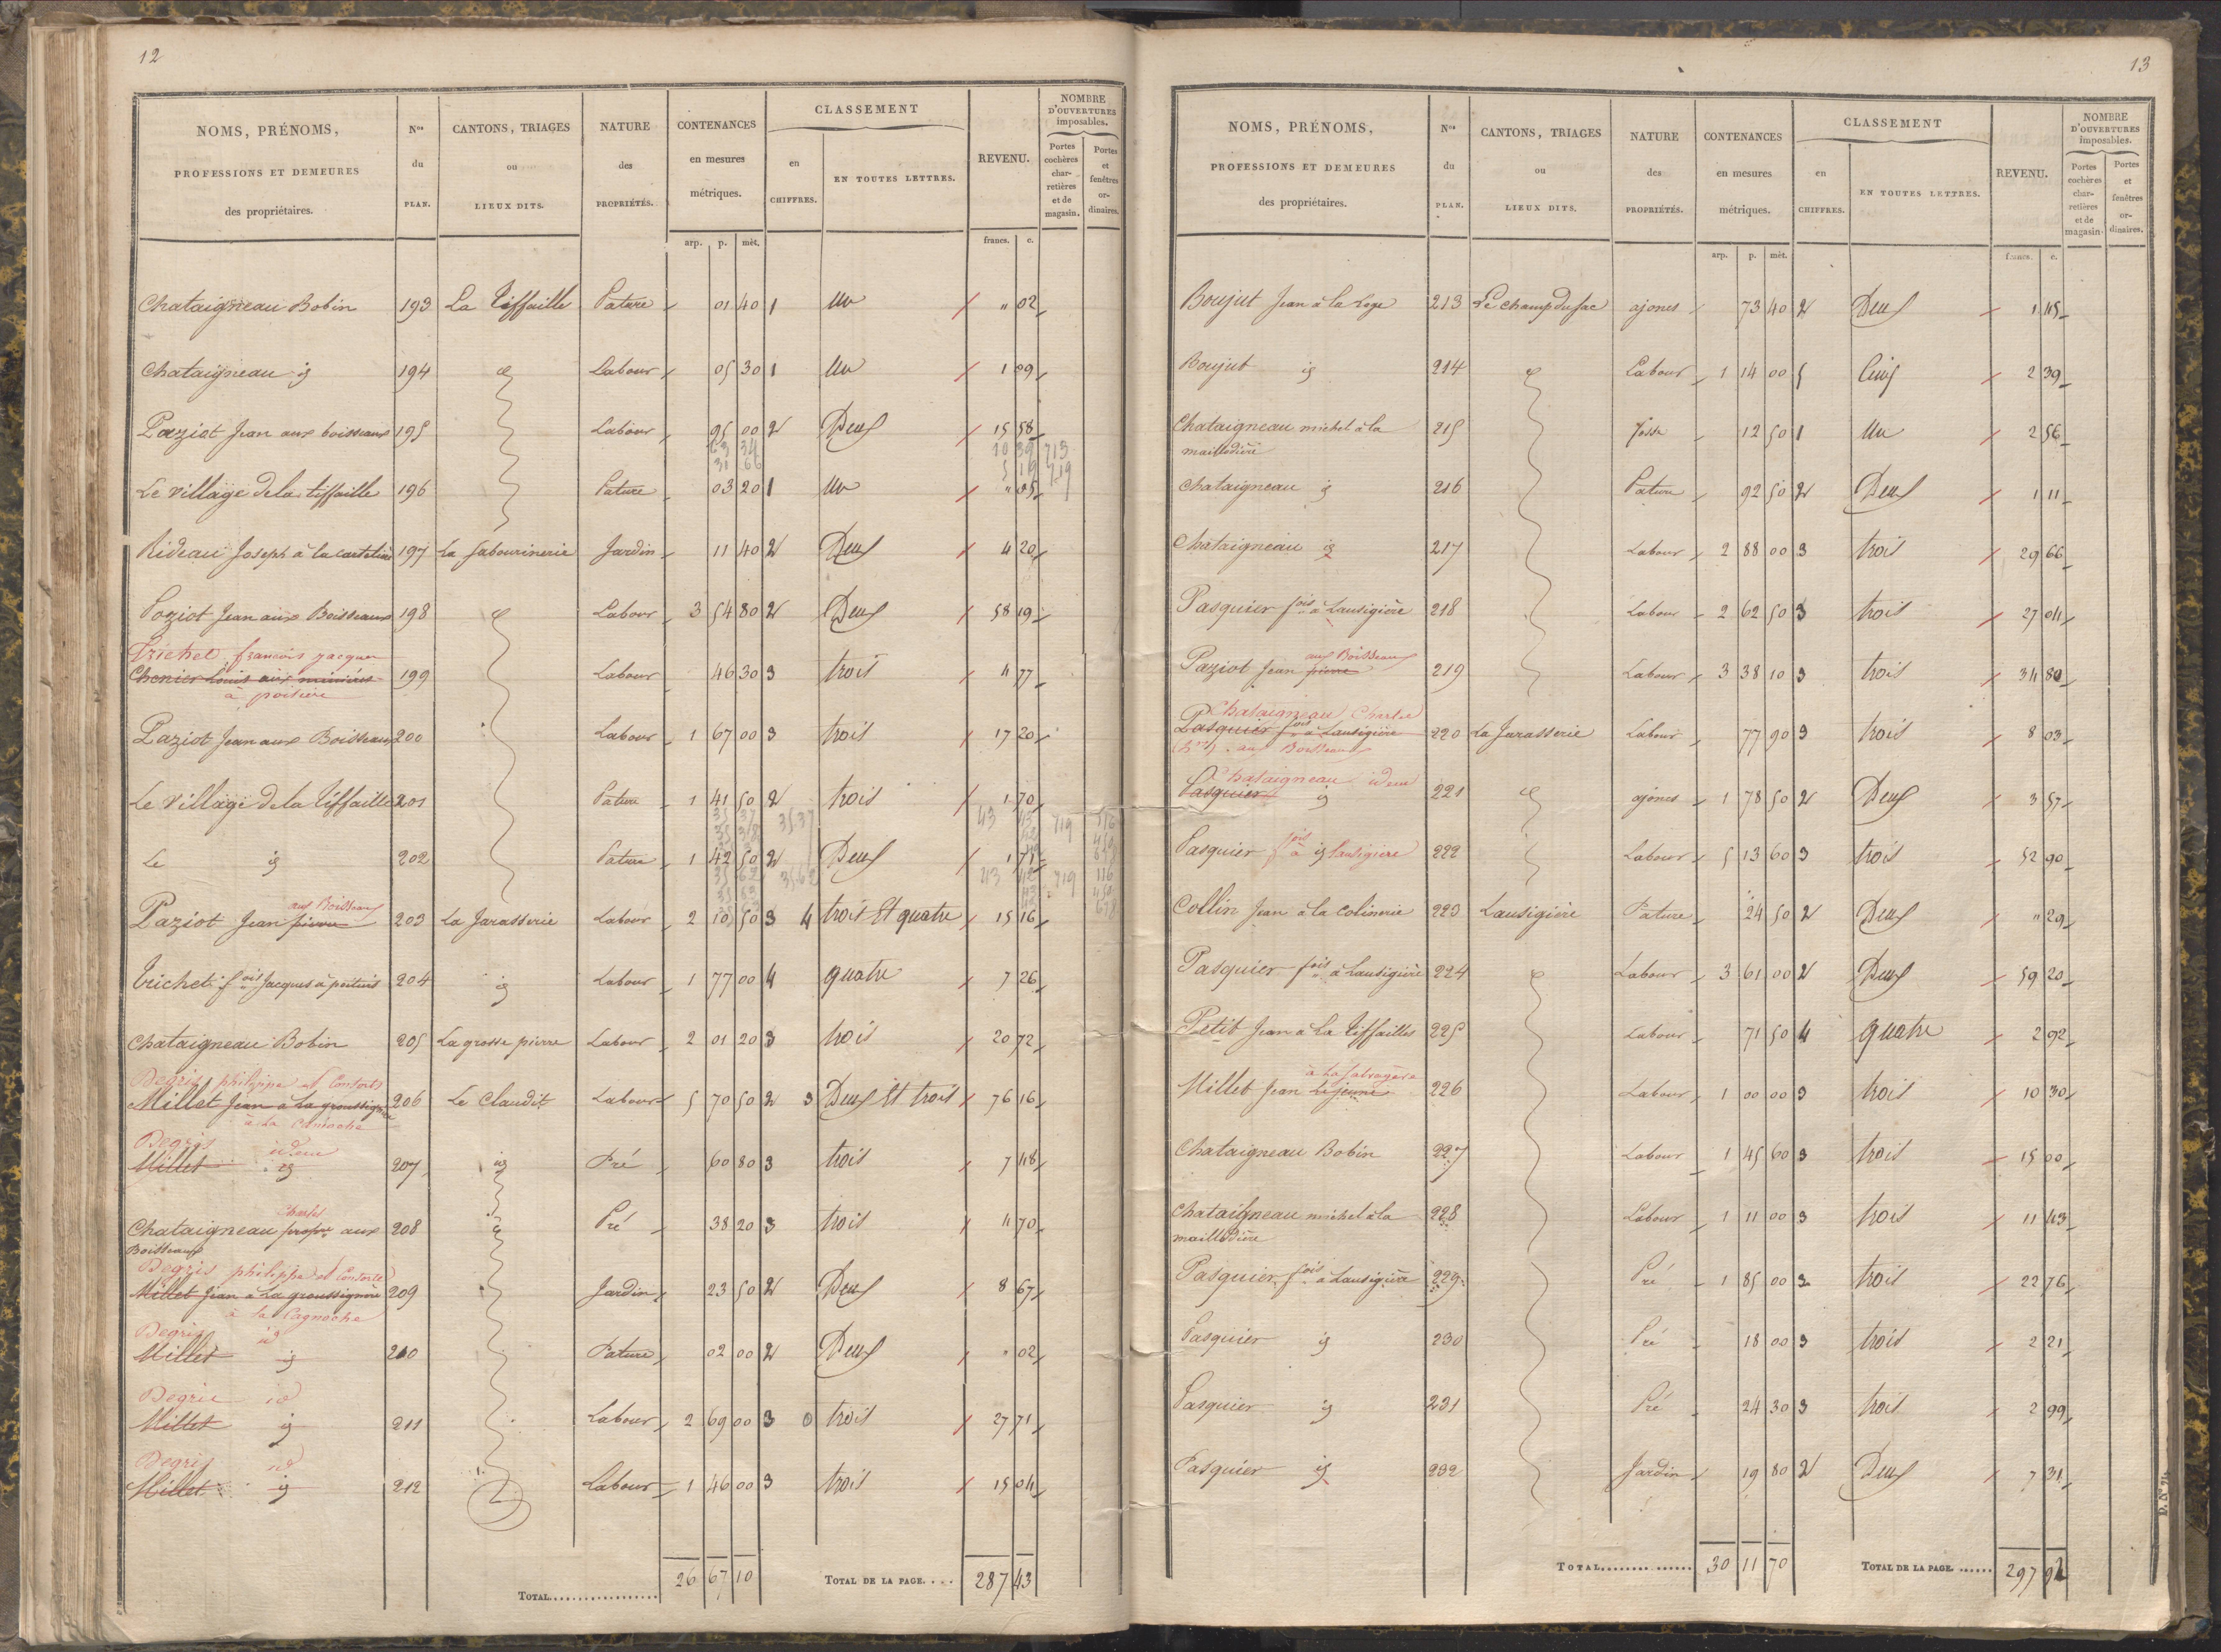 12
NOMS, PRÉNOMS, PROFESSIONS ET DEMEURES des propriétaires.
Nos du PLAN.
CANTONS, TRIAGES ou LIEUX DITS.
NATURE des PROPRIÉTÉS.
CONTENANCES en mesures métriques.
arp. p. mèt.
CLASSEMENT
en CHIFFRES.
EN TOUTES LETTRES.
REVENU.
francs. c.
NOMBRE D'OUVERTURES imposables.
Portes cochères char-retières et de magasin.
Portes et fenêtres or-dinaires.
Chataigneau Bobin 193 La Tiffaille Pature 01 40 1 Un " 02
Chataigneau id 194 id Labour 05 30 1 Un 1 09
Paziot Jean aux boisseaux 195 Labour 95 00 2 Deux 15 58
63 34 10 39 713
31 66 5 19 719
Le village de la tiffaille 196 Pature 03 20 1 Un " 05
Rideau Joseph à la 197 La Sabourinerie Jardin 11 40 2 Deux 4 20
Poziot Jean aux Boisseaux 198 id Labour 3 54 80 2 Deux 58 19
Trichet françois jacques
Chenier Louis aux minières 199 Labour 46 30 3 trois 4 77
à poitiers
Paziot Jean aux Boisseaux 200 Labour 1 67 00 3 trois 17 20
Le Village de la Tiffaille 201 Pature 1 41 50 2 trois 1 70
35 37 3537 43 719
Le id 202 Pature 1 42 50 2 Deux 1 71
35 62 3562 43 719 116
aux Boisseaux
Paziot Jean pierre 203 La Jarasserie Labour 2 10 50 3 4 trois Et quatre 15 16
Trichet fois Jacques à poitiers 204 id Labour 1 77 00 4 quatre 7 26
Chataigneau Bobin 205 La grosse pierre Labour 2 01 20 3 trois 20 72
Degris philippe et Consorts
Millet Jean à La groussignère 206 Le Claudit Labour 5 70 50 2 3 Deux Et trois 76 16
à La
Degris idem
Millet id 207 id Pré 60 80 3 trois 7 48
Charles
Chataigneau aux 208 id Pré 38 20 3 trois 4 70
Boisseaux
Degris philippe et Consorts
Millet Jean à La groussignère 209 Jardin 23 50 2 Deux 8 67
à la Cagnoche
Degris id
Millet id 210 Pature 02 00 2 Deux " 02
Degris id
Millet id 211 Labour 2 69 00 3 0 trois 27 71
Degris id
Millet id 212 Labour 1 46 00 3 trois 15 04
TOTAL.................. 26 67 10 TOTAL DE LA PAGE.... 287 43
13
NOMS, PRÉNOMS, PROFESSIONS ET DEMEURES des propriétaires.
Nos du PLAN.
CANTONS, TRIAGES ou LIEUX DITS.
NATURE des PROPRIÉTÉS.
CONTENANCES en mesures métriques.
arp. p. mèt.
CLASSEMENT
en CHIFFRES.
EN TOUTES LETTRES.
REVENU.
francs. c.
NOMBRE D'OUVERTURES imposables.
Portes cochères char-retières et de magasin.
Portes et fenêtres or-dinaires.
Boujut Jean à la Loge 213 Le champ du sac ajoncs 73 40 2 Deux 1 45
Boujut id 214 id Labour 1 14 00 5 Cinq 2 39
Chataigneau michel à la 215 12 50 1 Un 2 56
maillodière
Chataigneau id 216 Pature 92 50 2 Deux 1 11
Chataigneau id 217 Labour 2 88 00 3 trois 29 66
Pasquier fois à Lausigière 218 Labour 2 62 50 3 trois 27 04
aux Boisseaux
Paziot Jean pierre 219 Labour 3 38 10 3 trois 34 80
Chataigneau Charles
Pasquier fois à Lausigière 220 La Jarasserie Labour 77 90 3 trois 8 03
aux Boisseaux
Chataigneau idem
Pasquier id 221 id ajoncs 1 78 50 2 Deux 3 57
Pasquier fois à id Lausigière 222 Labour 5 13 60 3 trois 52 90
Collin Jean à la Colinerie 223 Lausigière Pature 24 50 2 Deux " 29
Pasquier fois à Lausigière 224 id Labour 3 61 00 2 Deux 59 20
Petit Jean à La Tiffailles 225 Labour 71 50 4 quatre 2 92
à La
Millet Jean Le jeune 226 Labour 1 00 00 3 trois 10 30
Chataigneau Bobin 227 Labour 1 45 60 3 trois 15 00
Chataigneau michel à la 228 Labour 1 11 00 3 trois 11 43
maillodière
Pasquier fois à Lausigière 229 Pré 1 85 00 3 trois 22 76
Pasquier id 230 Pré 18 00 3 trois 2 21
Pasquier id 231 Pré 24 30 3 trois 2 99
Pasquier id 232 Jardin 19 80 2 Deux 7 31
TOTAL.............. 30 11 70 TOTAL DE LA PAGE...... 297 92